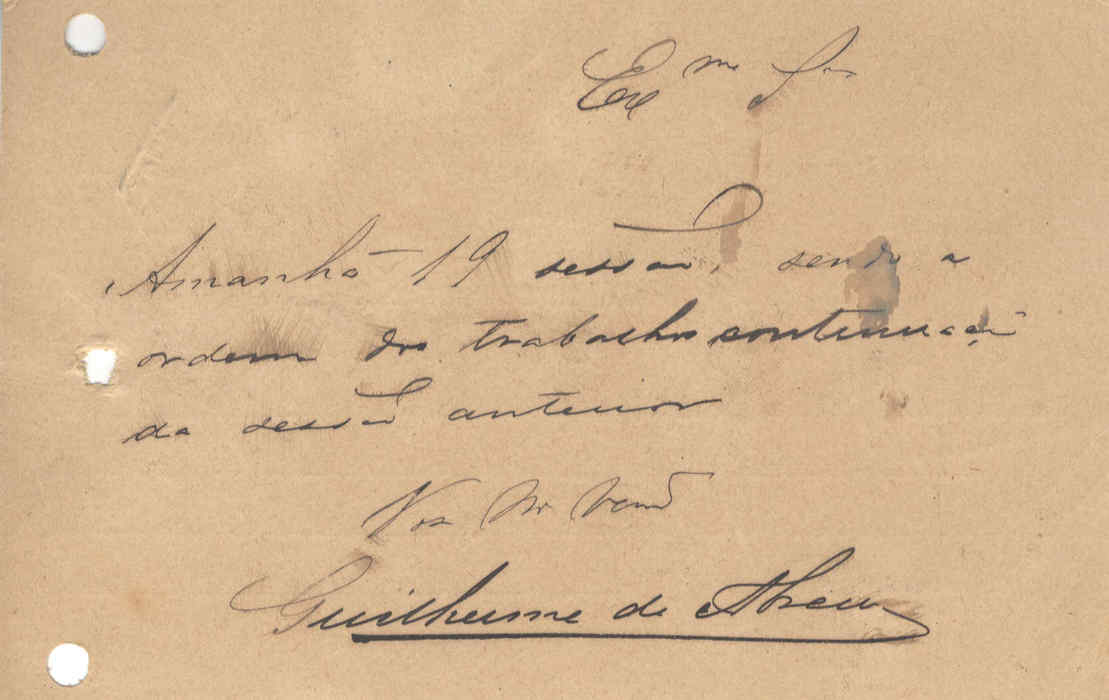 Exmo Snr
Amanhã 19 sessão, sendo a
ordem dos trabalhos continuação
da sessão anterior
Guilherme de Abreu